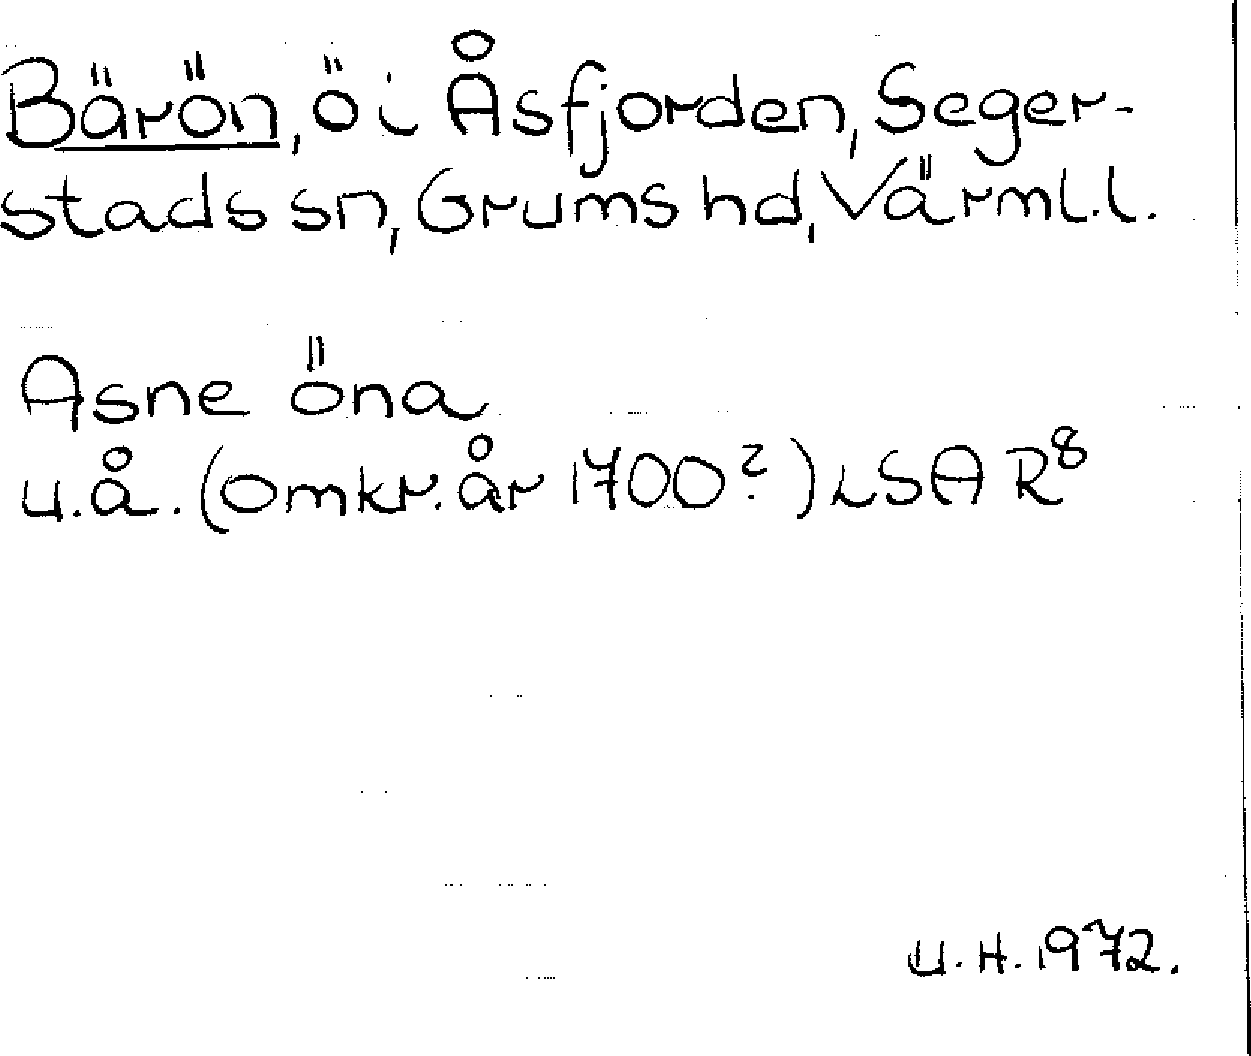 Bärön, ö i Åsfjorden, Seger-
stads sn, Grums hd, Värml.l.
Asne öna
u.å. (omkr. år 1700?) LSA R⁸
U.H. 1972.